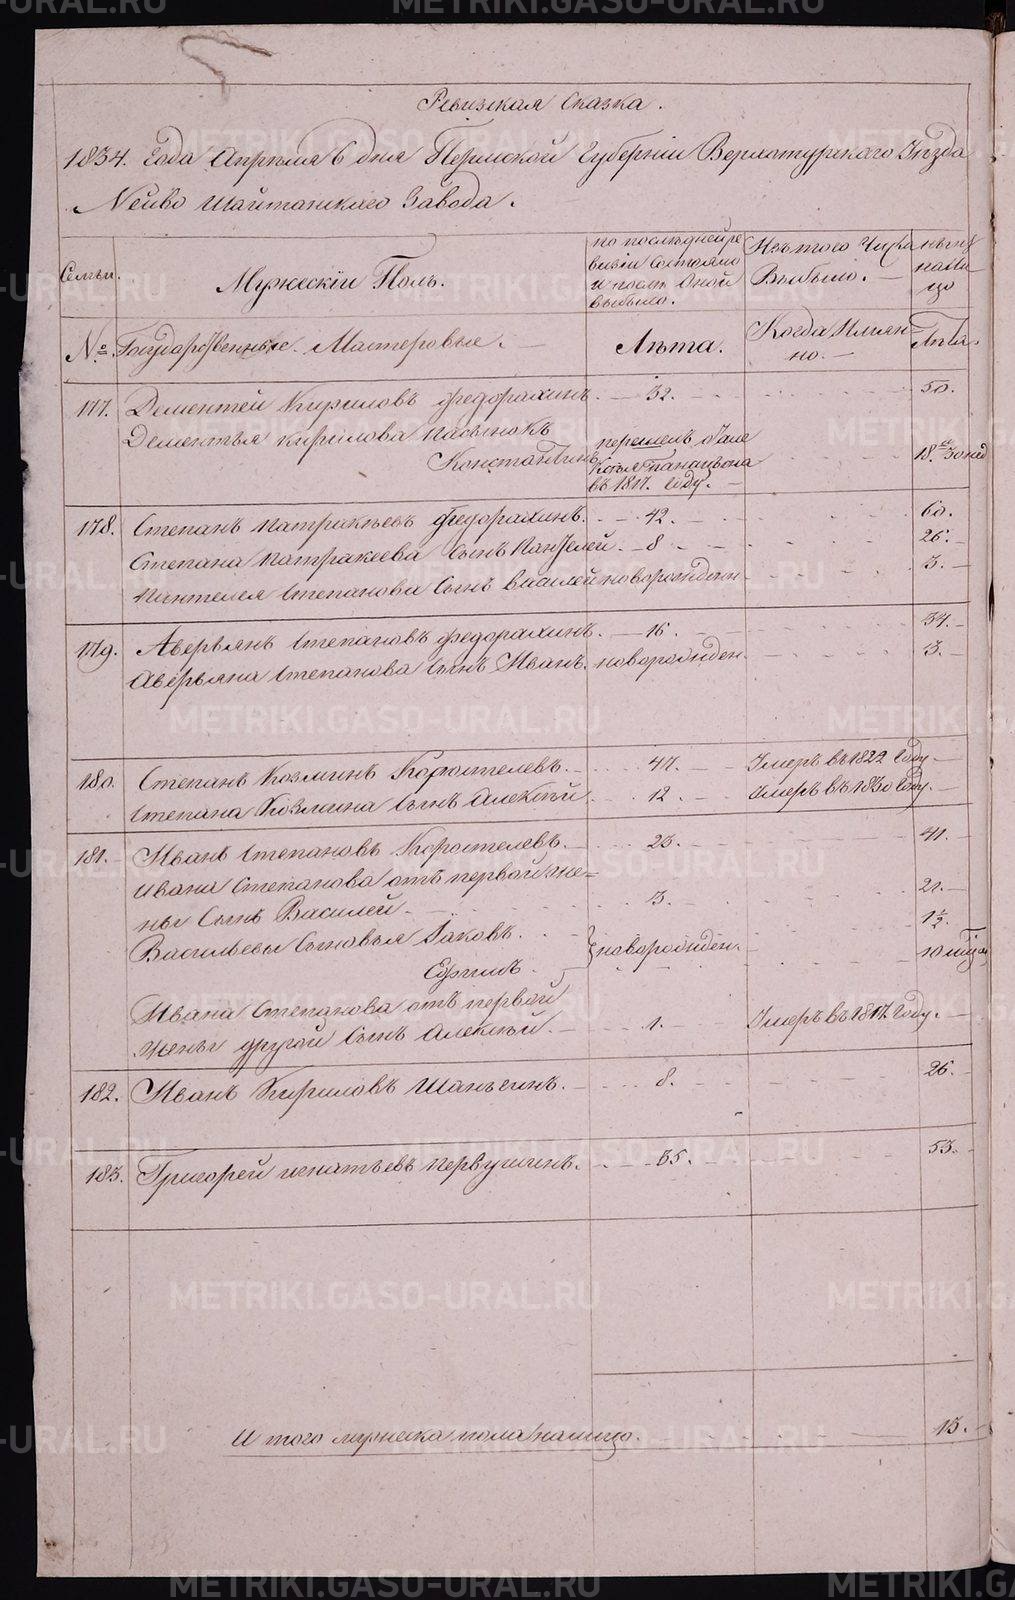 Ревизская Сказка.
1834. Года Апреля 6 дня Пермской Губернии Верхотурского Уѣзда
Нейво Шайтанского Завода.
Семьи.
Мужескiи Полъ.
по последней ре
визiи состояло
и после оной
выбыло.
Изъ того Числа
Выбыло. —
ныне
нали
цо
№
Государственные Мастеровые. —
Лѣта.
Когда Имян
но. —
Лѣта.
177. Дементей Кириловъ Федорахинъ. — 32. 50.
Дементья Кирилова пасынокъ
Константинъ перешелъ
въ 1817. Году. — 18.
178. Степанъ Патракѣевъ Федорахинъ. — 42. 60.
Степана Патракеева Сынъ Пантелей. — 8 26. —
Пантелея Степанова Сынъ Василей новорожден. 3. —
179. Аверьянъ Степановъ Федорахинъ. — 16. 34. —
Аверьяна Степанова Сынъ Иванъ. новорожден. 3. —
180. Степанъ Козминъ Коростелевъ. — 47. Умеръ въ 1822 Году —
Степана Козмина Сынъ Алексѣй 12. — Умеръ въ 1830 Году. —
181. Иванъ Степановъ Коростелевъ. — 23. 41. —
Ивана Степанова отъ первой же=
ны Сынъ Василей. — 3. 21. —
Васильевы Сыновья Iаковъ. 1½.
Ефимъ. } новорожден. 10
Ивана Степанова отъ первой
жены другой Сынъ Алексѣй. — 1. — Умеръ въ 1817. Году. —
182. Иванъ Кириловъ Шаньгинъ. — 8. 26. —
183. Григорей Игнатьевъ Первушинъ. 35. 53. —
И того мужеска пола налицо. 13. —
METRIKI.GASO-URAL.RU